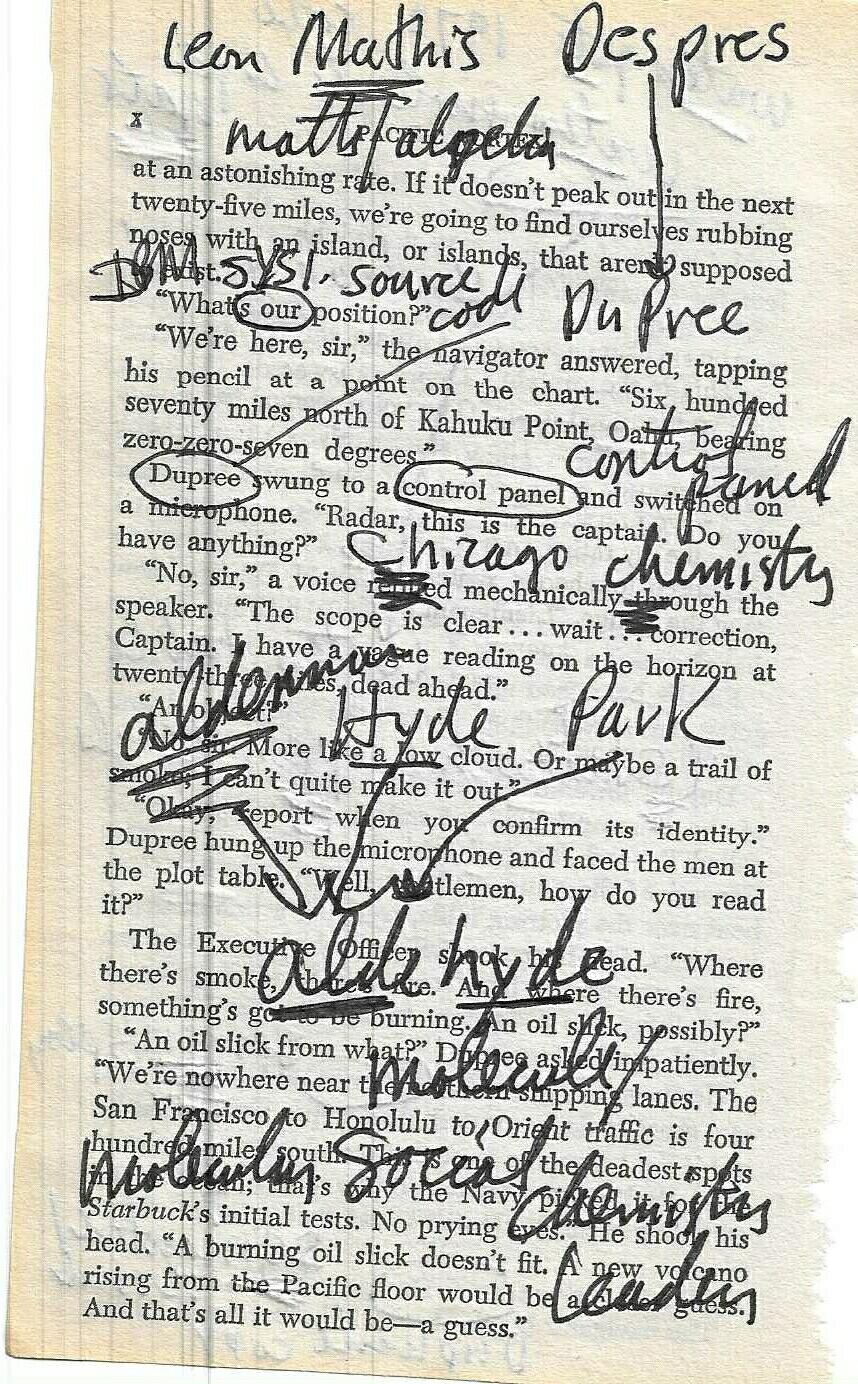 Leon Mathis Despres
x
math/algebra
PACIFIC VORTEX!
at an astonishing rate. If it doesn't peak out in the next
twenty-five miles, we're going to find ourselves rubbing
noses with an island, or islands, that aren't supposed
to exist."
syst. source
code
"What's our position?"
DuPree
"We're here, sir," the navigator answered, tapping
his pencil at a point on the chart. "Six hundred
seventy miles north of Kahuku Point, Oahu, bearing
zero-zero-seven degrees."
control
paned
Dupree swung to a control panel and switched on
a microphone. "Radar, this is the captain. Do you
have anything?"
Chicago chemistry
"No, sir," a voice replied mechanically through the
speaker. "The scope is clear... wait... correction,
Captain. I have a vague reading on the horizon at
twenty-three miles, dead ahead."
alderman
"An object?"
Hyde Park
"No, sir. More like a low cloud. Or maybe a trail of
smoke; I can't quite make it out."
"Okay, report when you confirm its identity."
Dupree hung up the microphone and faced the men at
the plot table. "Well, gentlemen, how do you read
it?"
The Executive Officer shook his head. "Where
aldehyde
there's smoke, there's fire. And where there's fire,
something's got to be burning. An oil slick, possibly?"
"An oil slick from what?" Dupree asked impatiently.
molecule/
"We're nowhere near the northern shipping lanes. The
San Francisco to Honolulu to Orient traffic is four
hundred miles south. This is one of the deadest spots
molecular social
chemistry
in the ocean; that's why the Navy picked it for the
Starbuck's initial tests. No prying eyes." He shook his
head. "A burning oil slick doesn't fit. A new volcano
leaders
rising from the Pacific floor would be a closer guess.
And that's all it would be—a guess."